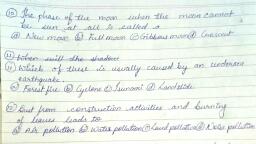 ⑩ The phase of the moon when the moon cannot
be seen at all is called a
ⓐ New moon ⓑ Full moon ⓒ Gibbous moon ⓓ Crescent
⑪ Which of these is usually caused by an undersea
earthquake.
ⓐ Forest fire ⓑ Cyclone ⓒ Tsunami ⓓ Landslide
⑫ Dust from construction activities and burning
of leaves leads to
ⓐ Air pollution ⓑ Water pollution ⓒ Land pollution ⓓ Noise pollution